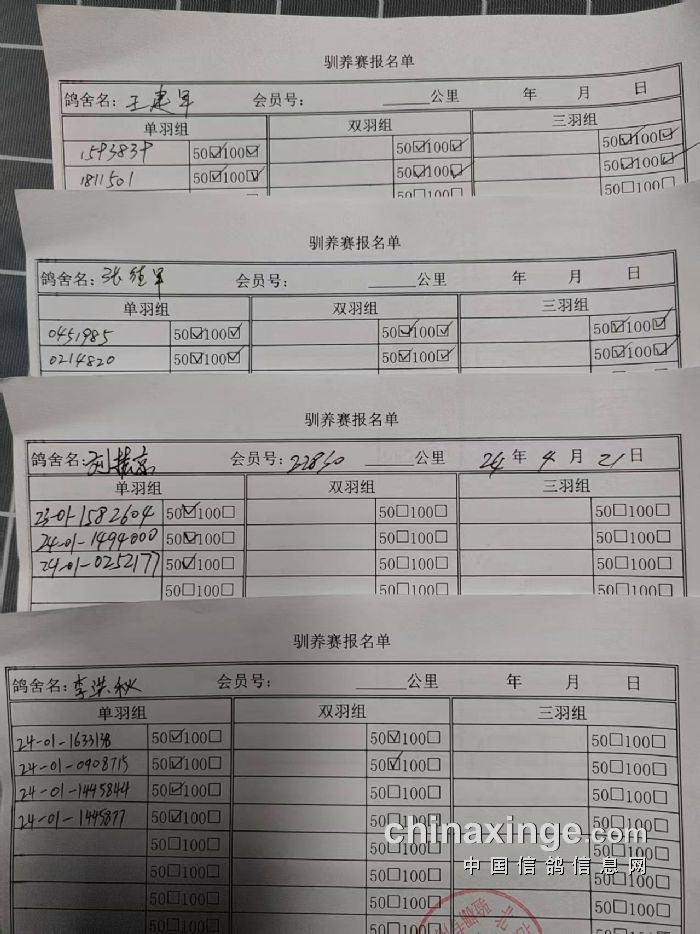 驯养赛报名单
鸽舍名：王建军 会员号： 公里 年 月 日
单羽组 双羽组 三羽组
1593839 50☑100☑ 50☑100☑ 50☑100☑
1811501 50☑100☑ 50☑100☑ 50☑100☑
50□100□ 50□10
驯养赛报名单
鸽舍名：张德军 会员号： 公里 年 月 日
单羽组 双羽组 三羽组
0451985 50☑100☑ 50☑100☑ 50☑100☑
0214820 50☑100☑ 50☑100☑ 50☑100☑
驯养赛报名单
鸽舍名：刘 会员号：22850 公里 24 年 4 月 21 日
单羽组 双羽组 三羽组
23-01-1582604 50☑100□ 50□100□ 50□100□
24-01-1494000 50☑100□ 50□100□ 50□100□
24-01-0252177 50☑100□ 50□100□ 50□100□
50□100□ 50□100□ 50□100□
驯养赛报名单
鸽舍名：李洪秋 会员号： 公里 年 月 日
单羽组 双羽组 三羽组
24-01-1633138 50☑100□ 50☑100□ 50□100□
24-01-0908715 50☑100□ 50☑100□ 50□100□
24-01-1445844 50☑100□ 50□100□ 50□100□
24-01-1445877 50☑100□ 50□100□ 50□100□
50□100□ 50□100□ 50□100□
50□100□ 50□100□ 50□100□
50□100□ 50□100□ 50□100□
50□100□ 50□100□ 50□100□
chinaxinge.com
中国信鸽信息网